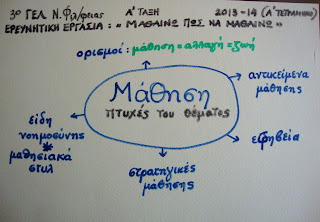 3º ΓΕΛ Ν. Φιλ/φειας Α' ΤΑΞΗ 2013-14 (Α' ΤΕΤΡΑΜΗΝΟ)
ΕΡΕΥΝΗΤΙΚΗ ΕΡΓΑΣΙΑ: «ΜΑΘΑΙΝΩ ΠΩΣ ΝΑ ΜΑΘΑΙΝΩ»
ορισμοί: μάθηση = αλλαγή = ζωή
αντικείμενα
μάθησης
Μάθηση
πτυχές του θέματος
είδη
νοημοσύνης
*
μαθησιακά
στυλ
εφηβεία
στρατηγικές
μάθησης